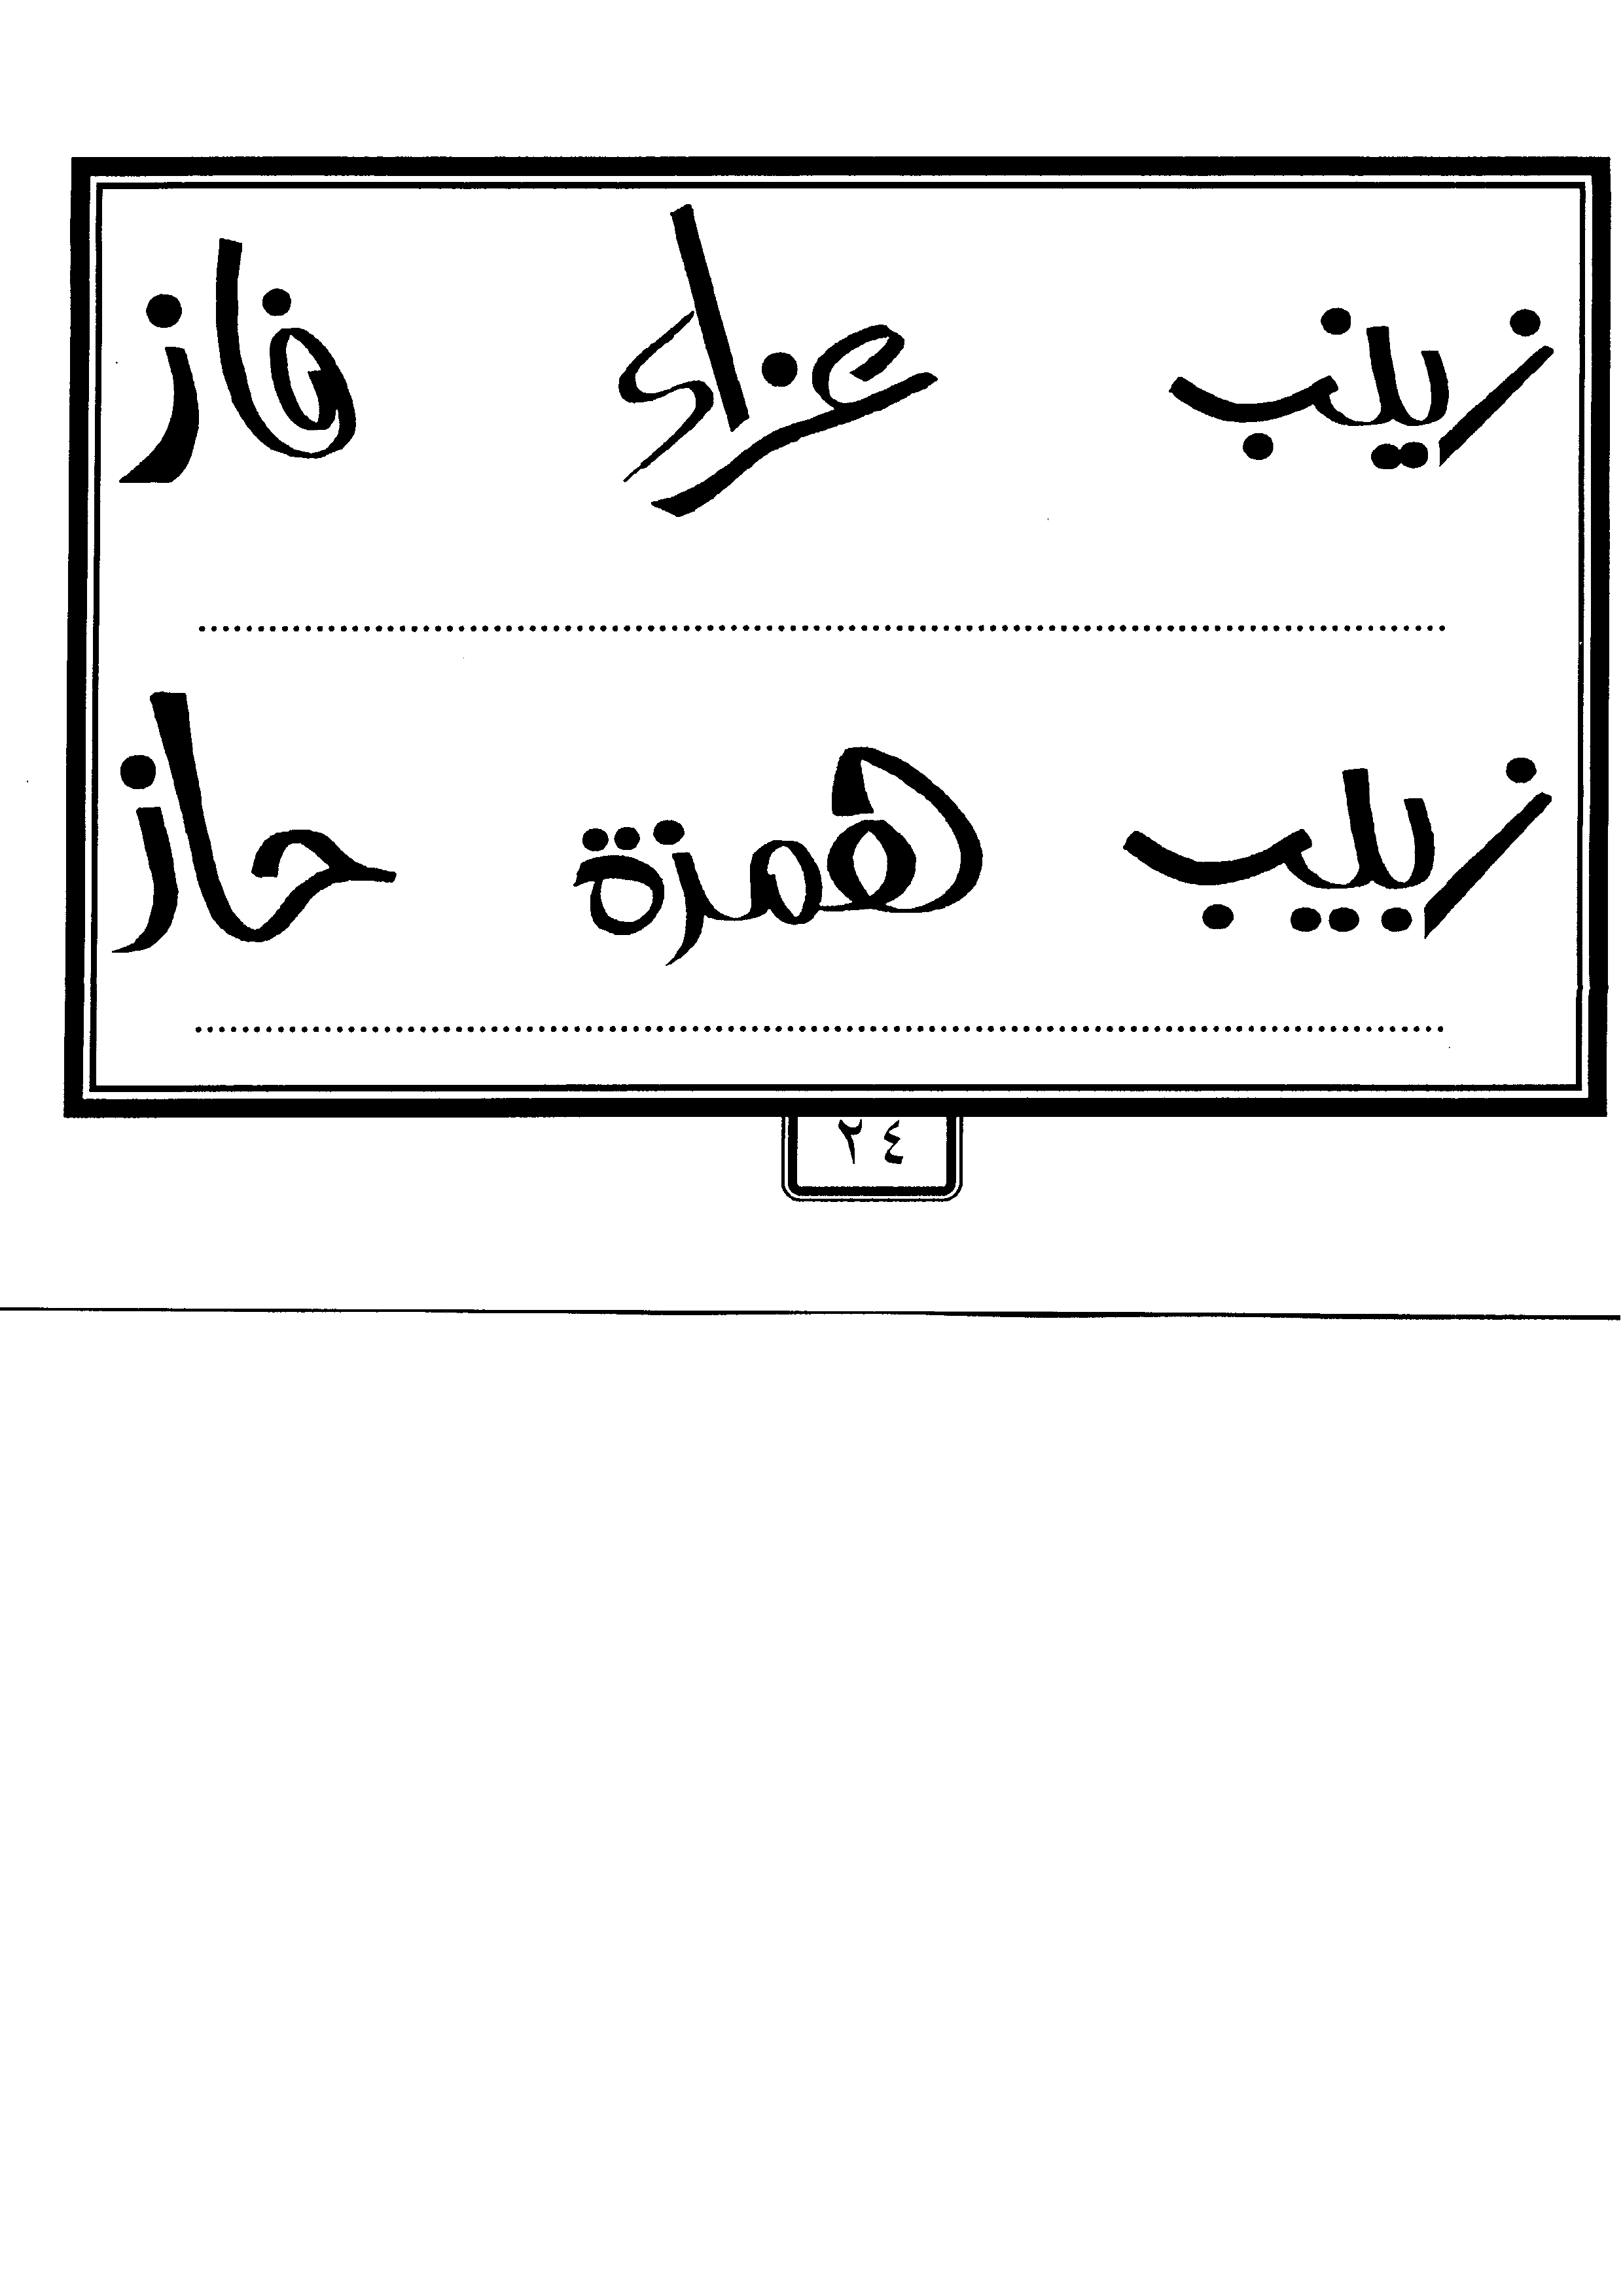 زينب عزاء فاز
زبيب همزة حاز
٢٤